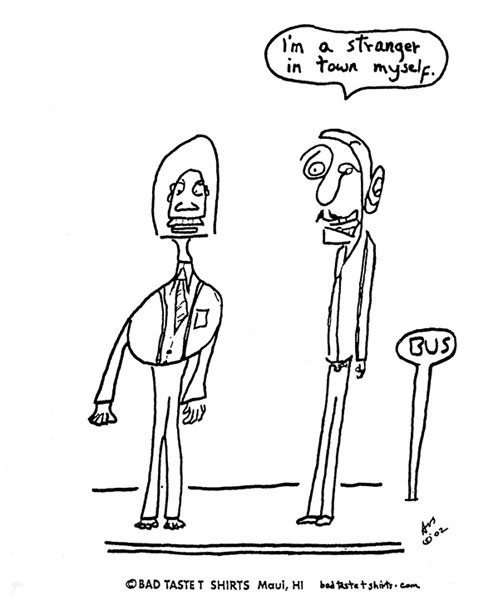 I'm a stranger
in town myself.
BUS
© '02
© BAD TASTE T SHIRTS Maui, HI badtastetshirts.com